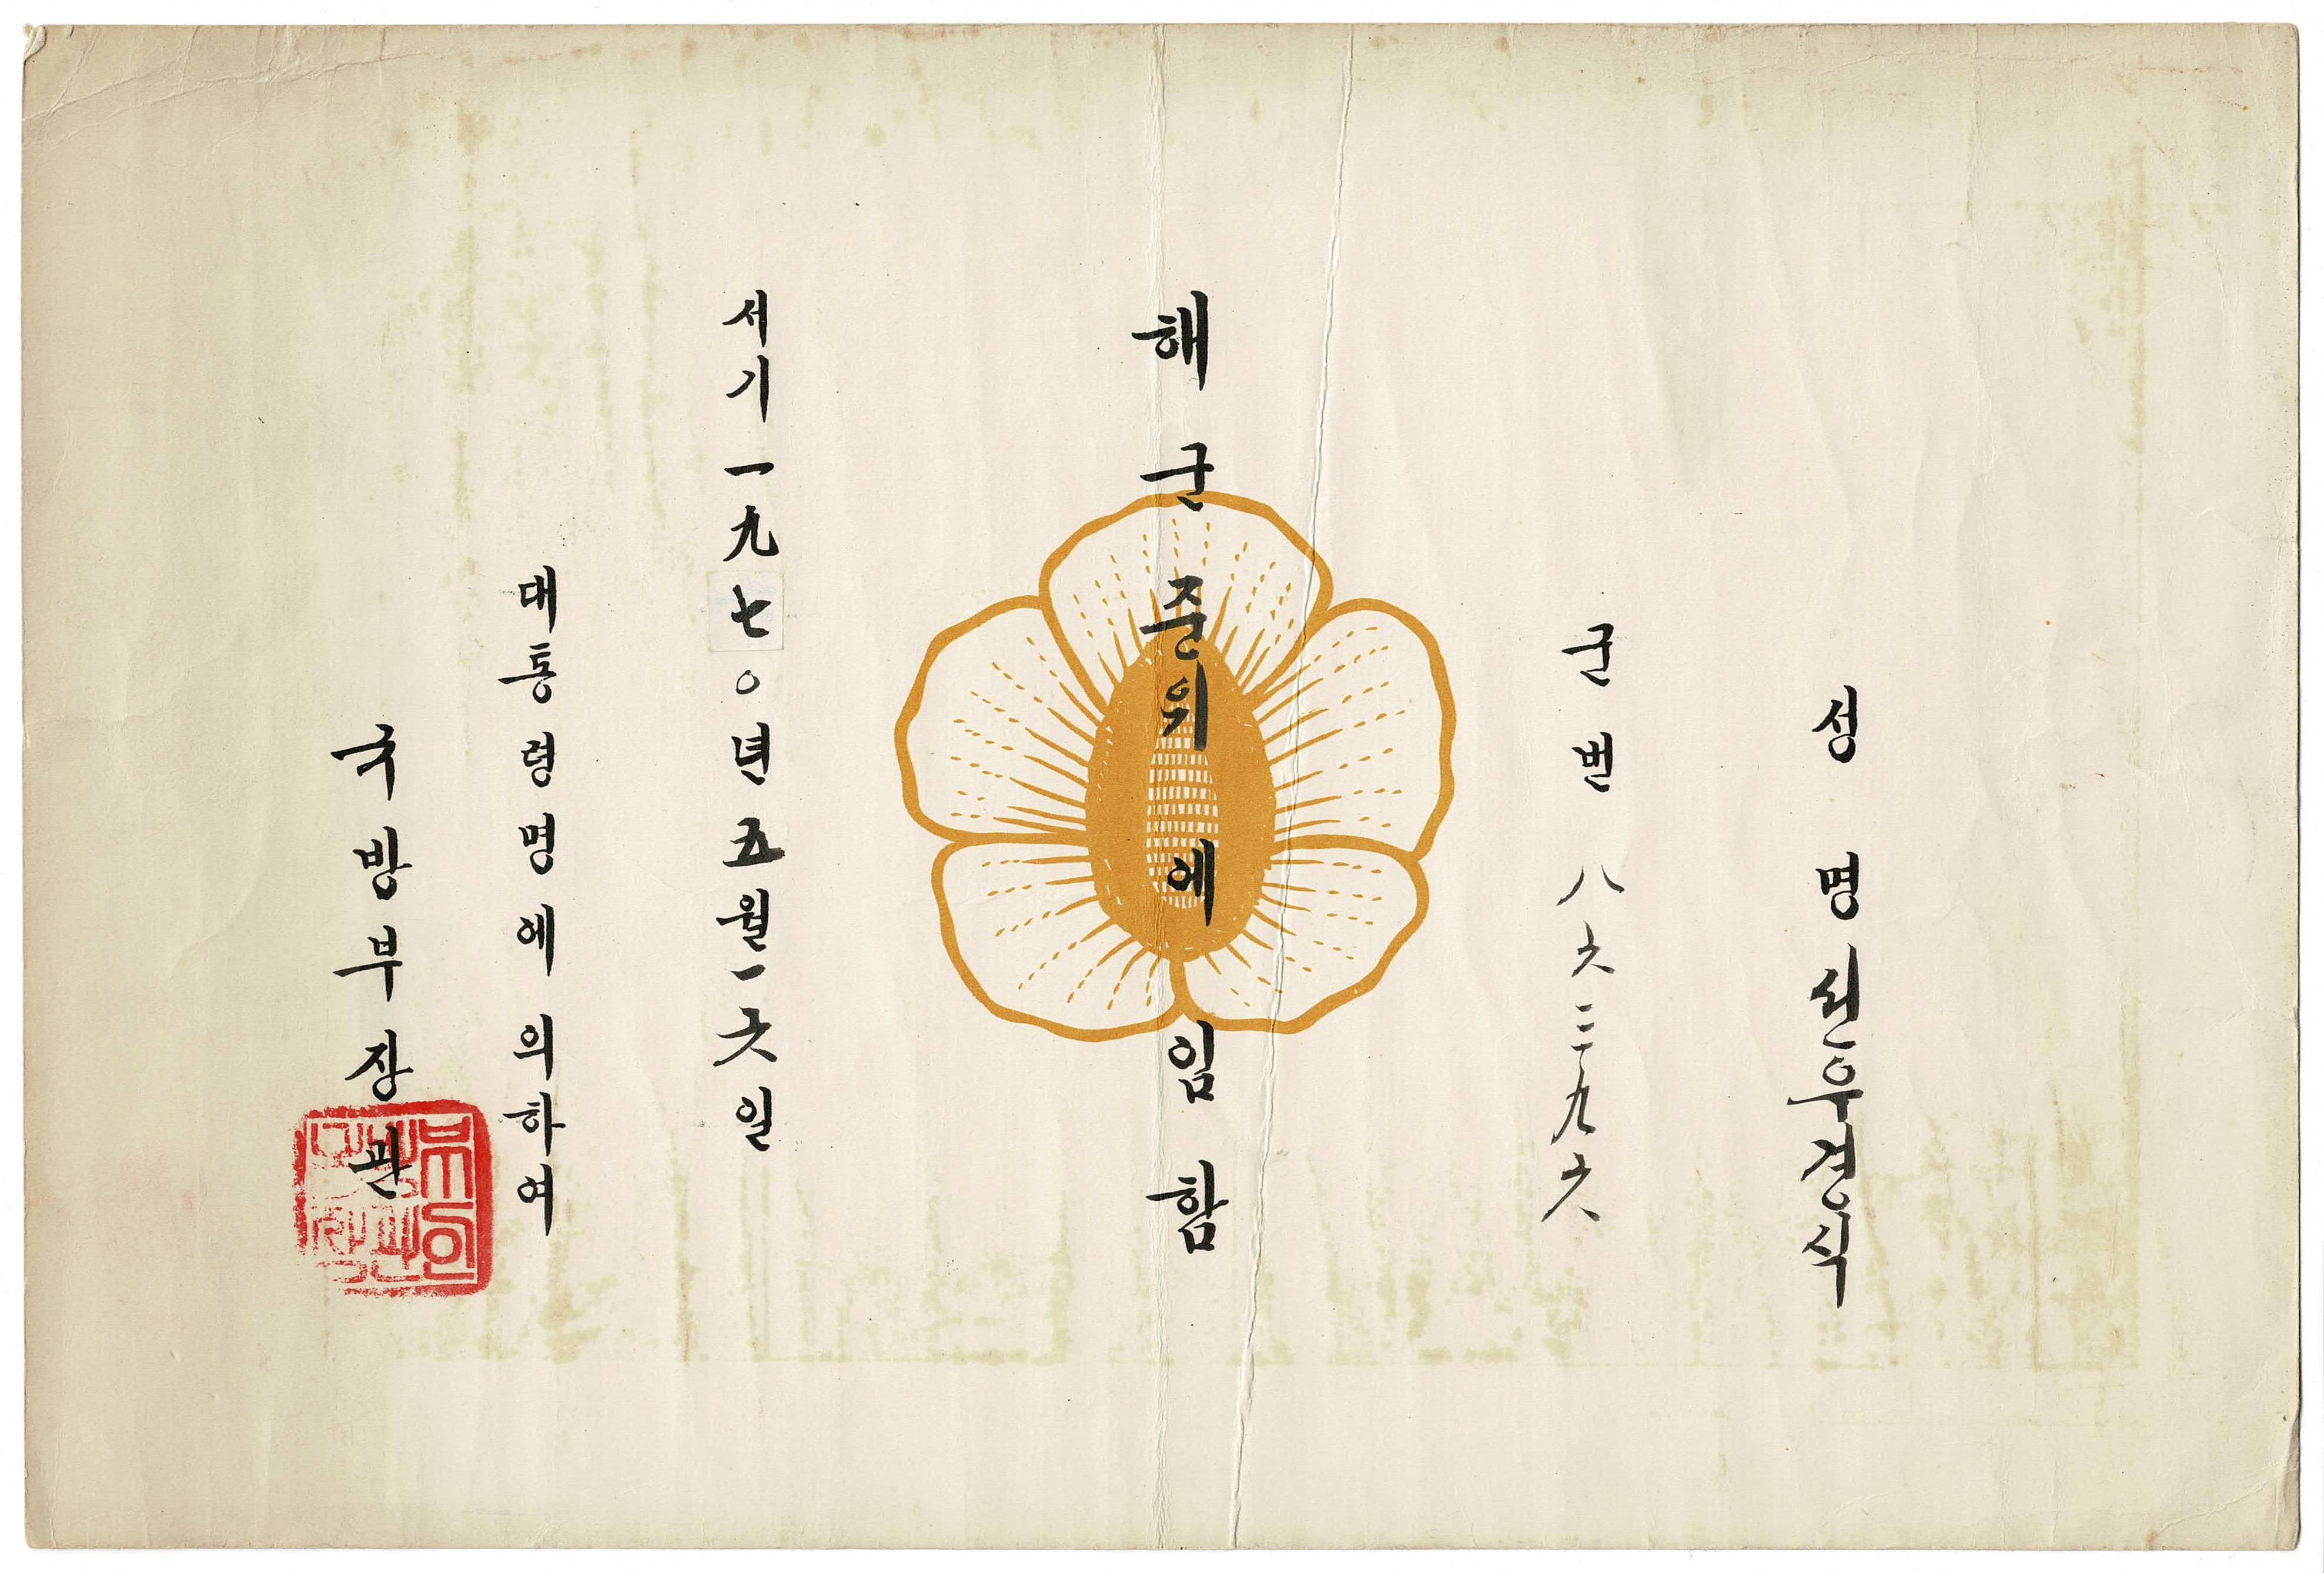 성명 선우경식
군번 八六二九六
해군준위에 임함
서기 一九七〇년 五월 一六일
대통령명에 의하여
국방부장관